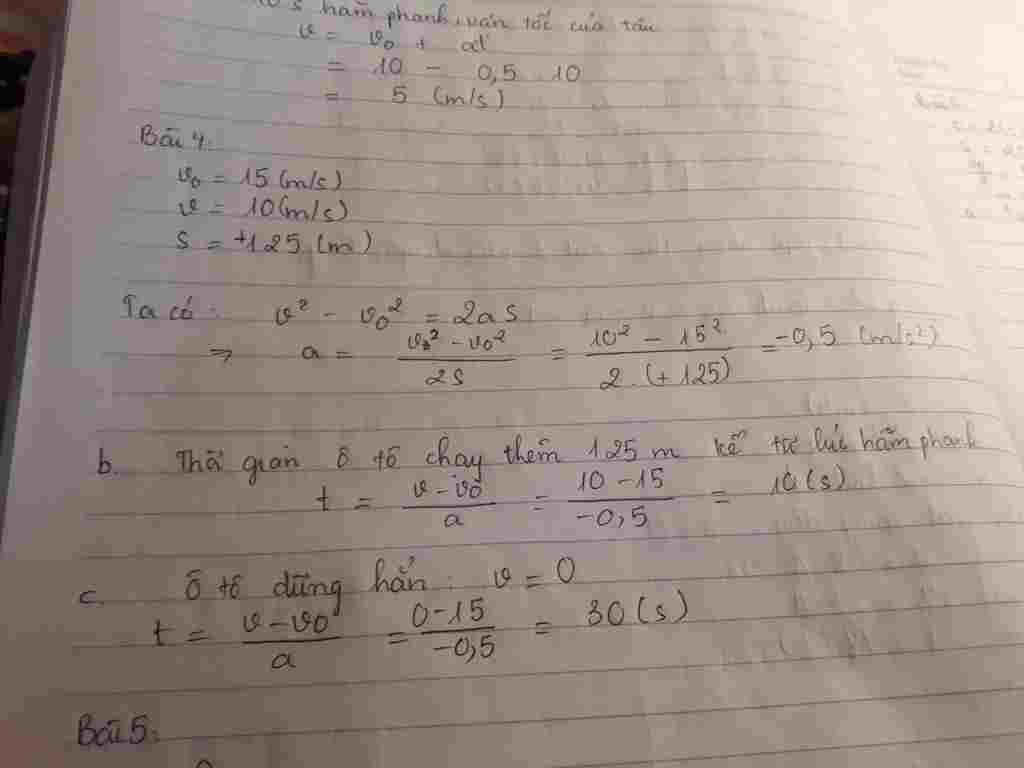 s hãm phanh, vận tốc của tàu
v = v₀ + at
= 10 - 0,5 10
= 5 (m/s)
Bài 4:
v₀ = 15 (m/s)
v = 10 (m/s)
s = +125 (m)
Ta có: v² - v₀² = 2as
=> a = (v² - v₀²)/(2s) = (10² - 15²)/(2.(+125)) = -0,5 (m/s²)
b. Thời gian ô tô chạy thêm 125 m kể từ lúc hãm phanh
t = (v - v₀)/a = (10 - 15)/(-0,5) = 10 (s)
c. Ô tô dừng hẳn: v = 0
t = (v - v₀)/a = (0 - 15)/(-0,5) = 30 (s)
Bài 5: